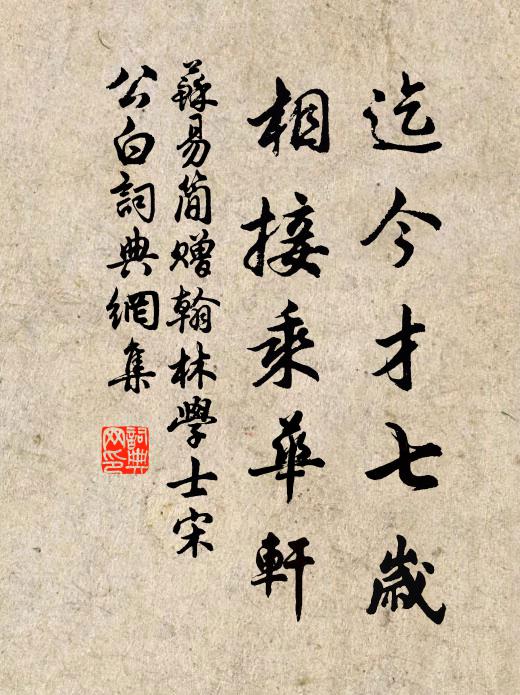 迄今才七歲
相接乘華軒
蘇易簡贈翰林學士宋
公白詞典網集
詞典
网印